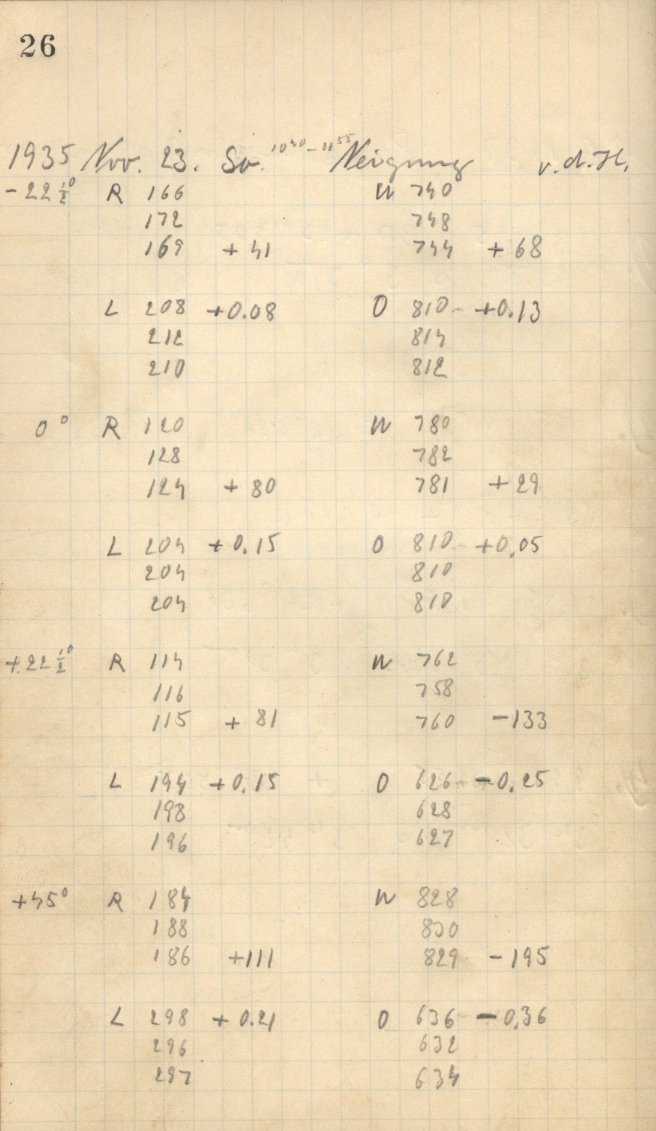 26
1935 Nov. 23. Sa. 10⁴⁰–11⁵⁵ Neigung v.d.H.
-22½° R 166 W 740
172 748
169 +41 744 +68
L 208 +0.08 O 810 +0.13
212 814
210 812
0° R 120 W 780
128 782
124 +80 781 +29
L 204 +0.15 O 810 +0,05
204 810
204 810
+22½° R 114 W 762
116 758
115 +81 760 -133
L 194 +0.15 O 626 -0.25
198 628
196 627
+45° R 184 W 828
188 830
186 +111 829 -195
L 298 +0.21 O 636 -0,36
296 632
297 634